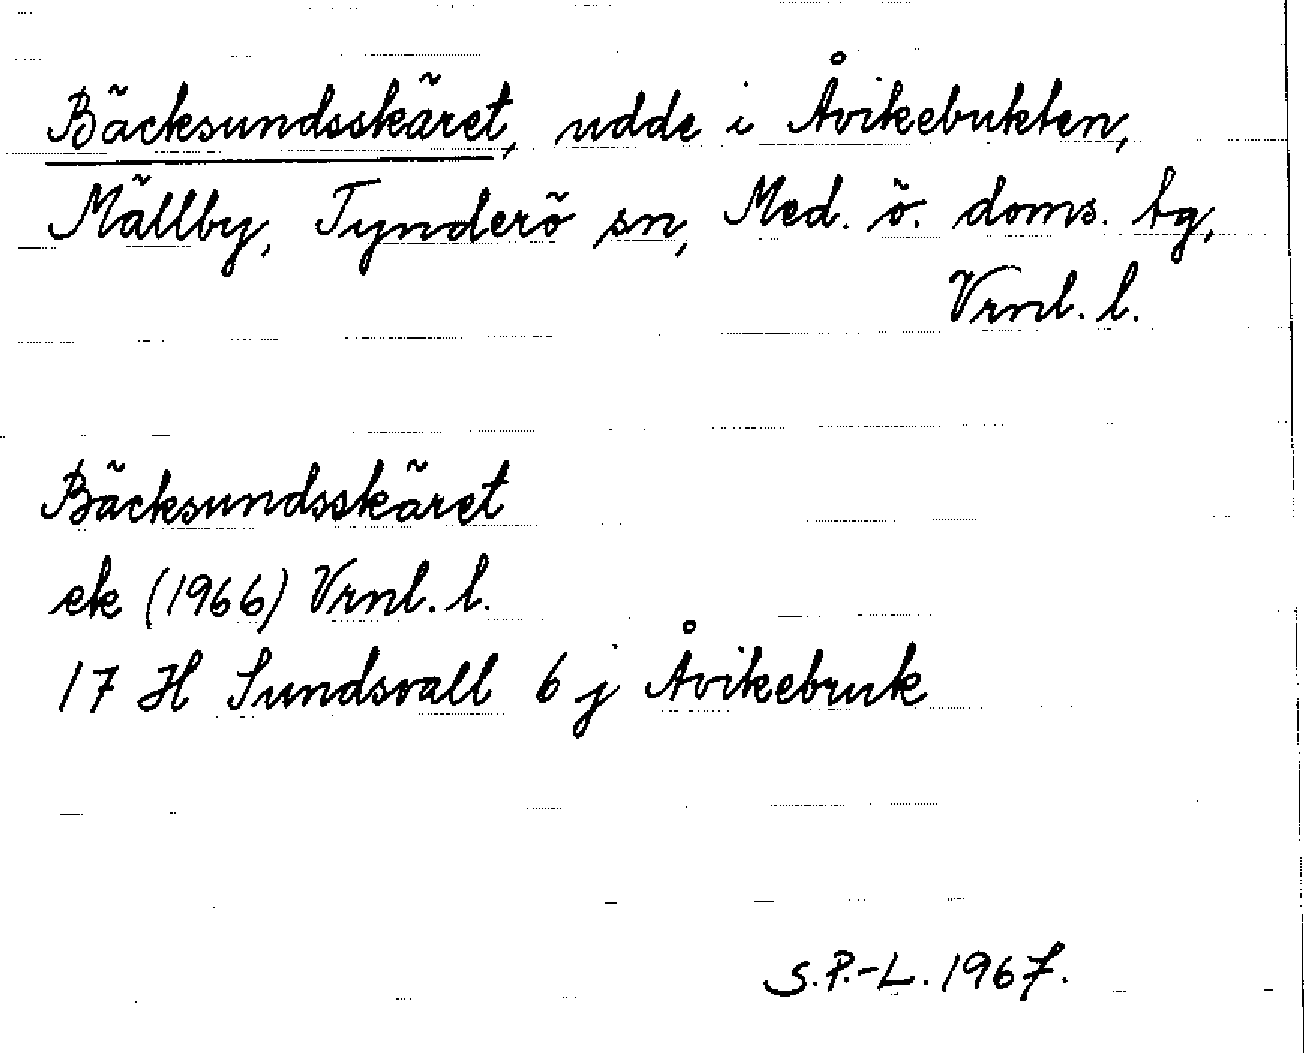 Bäcksundsskäret, udde i Åvikebukten,
Mällby, Tynderö sn, Med. ö. doms. tg,
Vrnl. l.
Bäcksundsskäret
ek (1966) Vrnl. l.
17 H Sundsvall 6 j Åvikebruk
S.P.-L. 1967.